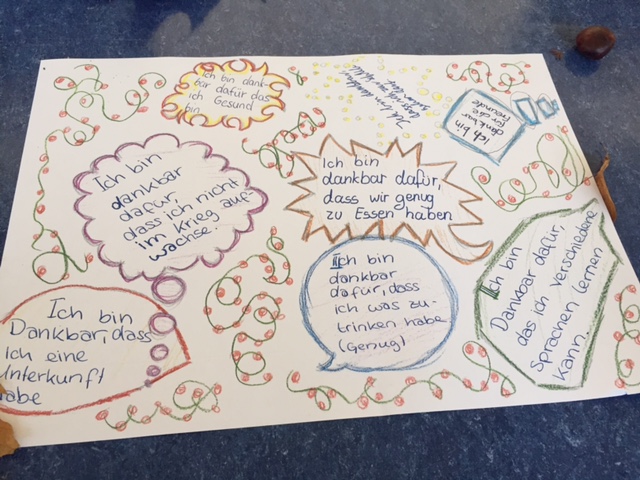 Ich bin dank-
bar dafür das
ich Gesund
bin
Ich bin dankbar
Ich bin
dankbar
für die
freunde
Ich bin
dankbar
dafür,
dass ich nicht
im Krieg auf-
wachse.
Ich bin
dankbar dafür,
dass wir genug
zu Essen haben
Ich bin
dankbar
dafür, dass
ich was zu-
trinken habe
(Genug)
Ich bin
Dankbar dafür,
das ich verschiedene
Sprachen lernen
kann.
Ich bin
Dankbar, dass
ich eine
Unterkunft
habe